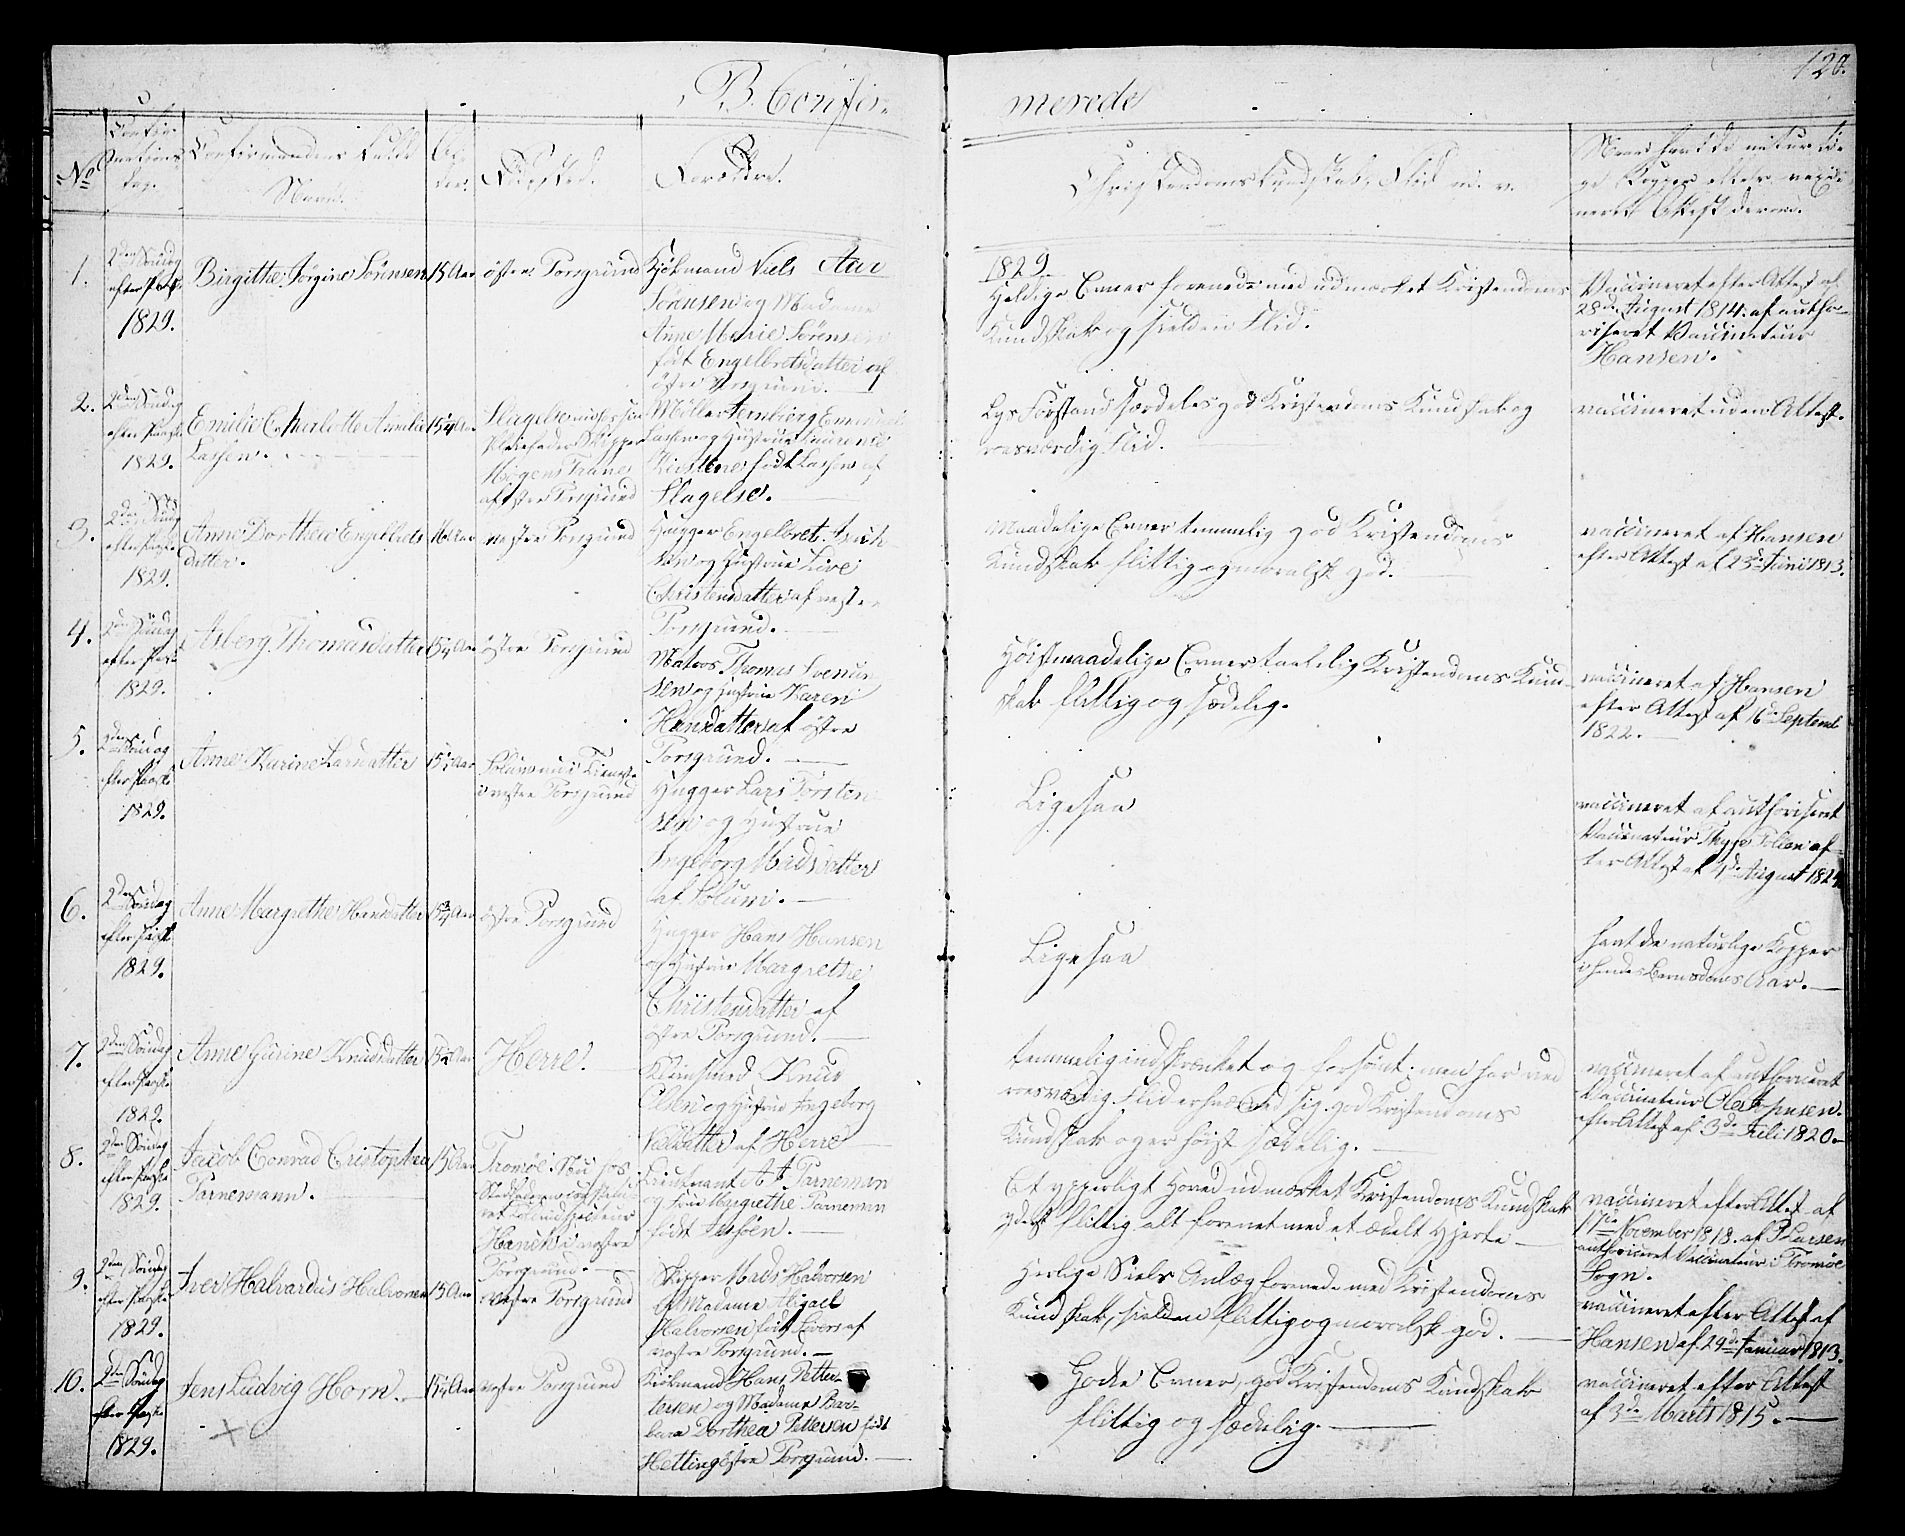 120.
B. Confir-
merede
No
Confir-
mations
Dag.
Confirmandens Fulde
Navn.
Al-
der.
Fødested.
Forældre.
Christendoms Kundskab, Flid m. v.
Naar havt de naturli-
ge Kopper eller vacci-
neret Attest derom.
1.
2den Søndag
efter Paaske
1829.
Birgithe Jørgine Sørensen
15 Aar
østre Porsgrund
Kjøbmand Niels Aar
Sørensen og Madame
Anne Marie Sørensen
født Engelbretsdatter af
østre Porsgrund.
1829.
Heldige Evner forenede med udmærket Kristendoms
Kundskab og sielden Flid.
Vaccineret efter Attest af
28de August 1814 af autho-
riseret Vaccinateur
Hansen.
2.
2den Søndag
efter Paaske
1829.
Emilie Charlotte Amalie
Lassen.
15 1/4 Aar
Slagelse
Pleiefader Skipper
Mogens
af østre Porsgrund
Møller
Lassen og Hustrue
Kirstine født Lassen af
Slagelse.
Lys Forstand særdeles god Kristendoms Kundskab og
roesværdig Flid.
vaccineret uden Attest.
3.
2den Søndag
efter Paaske
1829.
Anne Dorthea Engelbrets
datter.
16 Aar
vestre Porsgrund
Hugger Engelbret
sen og Hustrue Live
Christensdatter af vestre
Porsgrund.
Maadelige Evner temmelig god Kristendoms
Kundskab flittig og moralsk god.
vaccineret af Hansen
efter Attest af 23de Juni 1813.
4.
2den Søndag
efter Paaske
1829.
Asberg Thomasdatter
15 1/4 Aar
østre Porsgrund
Matros Thomas Svenun
sen og Hustrue Karen
Hansdatter af østre
Porsgrund.
Høistmaadelige Evner taalelig Kristendoms Kund-
skab flittig og sædelig.
vaccineret af Hansen
efter Attest af 16de Septemb
1822.
5.
2den Søndag
efter Paaske
1829.
Anne Karine Larsdatter
15 1/4 Aar
Solum nu i Tieneste
i vestre Porsgrund
Hugger Lars Torsten
sen og Hustrue
Ingeborg Madsdatter
af Solum.
Ligesaa
vaccineret af authoriseret
Vaccinateur Tygge Tollen ef-
ter Attest af 4de August 1824
6.
2den Søndag
efter Paaske
1829.
Anne Margrethe Hansdatter
15 3/4 Aar
østre Porsgrund
Hugger Hans Hansen
og Hustrue Margrethe
Christensdatter af
østre Porsgrund.
Ligesaa
havt de naturlige Kopper
i hendes Barndoms Aar.
7.
2den Søndag
efter Paaske
1829.
Anne Gurine Knudsdatter
15 1/2 Aar
Herre.
Kleinsmed Knud
Olsen og Hustrue Ingeborg
Nielsdatter af Herre
temmelig indskrænket og forsømt; men har ved
roesværdig Flid erhvervet sig god Kristendoms
Kundskab og er høist sædelig.
vaccineret af authoriseret
Vaccinateur Ole Apnesen
efter Attest af 3de Juli 1820.
8.
2den Søndag
efter Paaske
1829.
Jacob Conrad Cristopher
Parnemann.
15 Aar
Tromøe. Nu hos
i vestre
Porsgrund.
Lieutenant A A Parneman
og Frue Margrethe Parneman
født Jersøen.
Et ypperligt Hoved udmærket Kristendoms Kundskab
yderst flittig alt forenet med et ædelt Hjerte
vaccineret efter Attest af
17de November 1818. af P Larsen
authoriseret Vaccinateur i Tromøe
Sogn.
9.
2den Søndag
efter Paaske
1829.
Iver Halvardus Halvorsen
15 Aar
vestre Porsgrund
Skipper Mads Halvorsen
og Madame Abigael
Halvorsen født Livers af
vestre Porsgrund.
Herlige Siels Anlæg forenede med Kristendoms
Kundskab, sielden flittig og moralsk god.
vaccineret efter Attest af
Hansen af 29de Januar 1813.
10.
2den Søndag
efter Paaske
1829.
Jens Ludvig Horn.
15 1/4 Aar
vestre Porsgrund
Kiøbmand Hans Petter
Petersen og Madame Bar-
bara Dorthea Pettersen født
Hetting østre Porsgrund.
Gode Evner, god Kristendoms Kundskab
flittig og sædelig.
vaccineret efter Attest
af 3de Marts 1815.